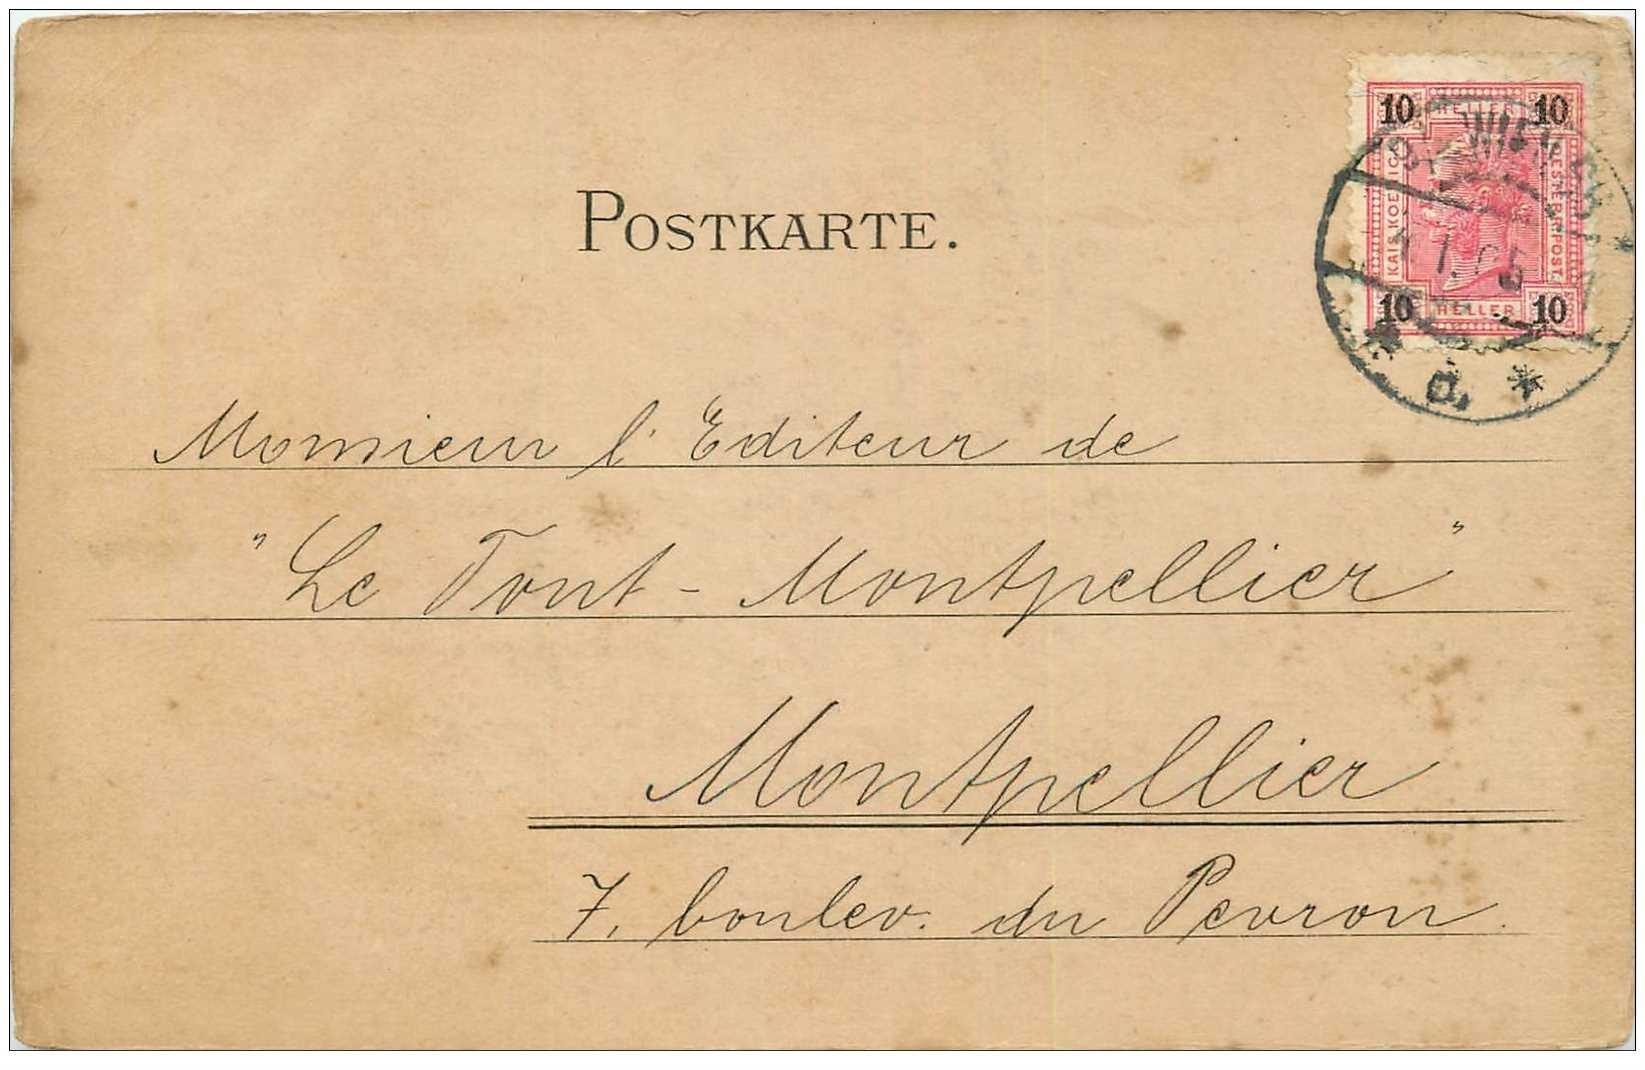 POSTKARTE.
10 HELLER 10
KAIS. KOENIGL. OESTERR. POST.
10 HELLER 10
WIEN
Monsieur l'Editeur de
"Le Tout - Montpellier"
Montpellier
7, boulev. du Pevron.